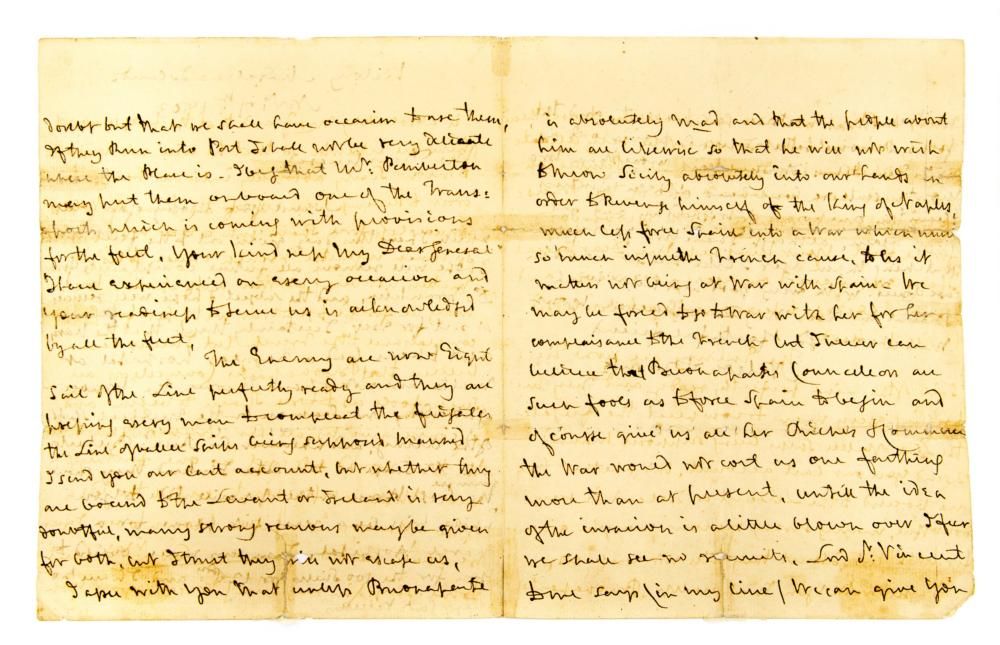 doubt but that we shall have occasion to use them,
If they Run into Port I shall not be very delicate
where the Place is - I beg that Mr. Pemberton
may put them on board one of the Trans=
=ports, which is coming with provisions
for the fleet, Your kindness My Dear General
I have experienced on every occasion and
your readiness to serve us is acknowledged
by all the fleet,
The Enemy are now Eight
Sail of the Line perfectly ready and they are
pressing every man to compleat the frigates
the Line of Battle Ships being supposed Manned
I send you our last account, but whether they
are bound to the Levant or Ireland is very
doubtful, many strong reasons may be given
for both, but I trust they will not escape us,
I agree with you that unless Buonaparte
is absolutely mad and that the people about
him are likewise so that he will not wish
to throw Sicily absolutely into our hands in
order to Revenge himself of the King of Naples,
much less force Spain into a War which must
so much injure the French cause, to us it
matters not being at War with Spain - We
may be forced to go to War with her for her
complaisance to the French but I never can
believe that Buonaparte's Councellors are
such fools as to force Spain to begin and
of course give us all her Riches & Commerce
the War would not cost us one farthing
more than at present, untill the idea
of the invasion is a little blown over I fear
we shall see no recruits, Lord St. Vincent
tone says (in my line) We can give you